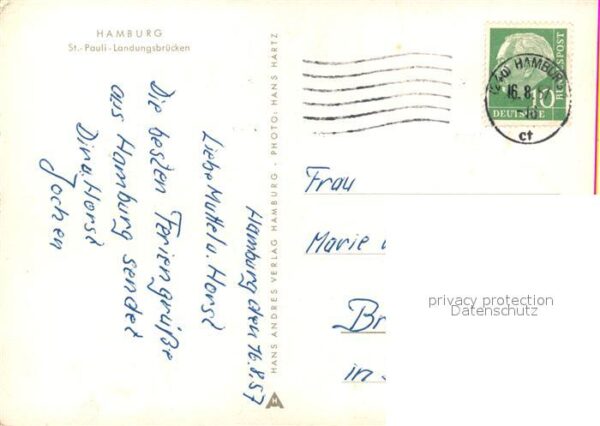 HAMBURG
St.-Pauli-Landungsbrücken
Hamburg den 16.8.57
Liebe Muttel u. Horst
Die besten Feriengrüße
aus Hamburg sendet
Dina, Horst
Jochen
HANS ANDRES VERLAG HAMBURG · PHOTO: HANS HARTZ
HAMBURG
16.8.
ct
10
BUNDESPOST
DEUTSCHE
Frau
Marie
Br
in
privacy protection
Datenschutz